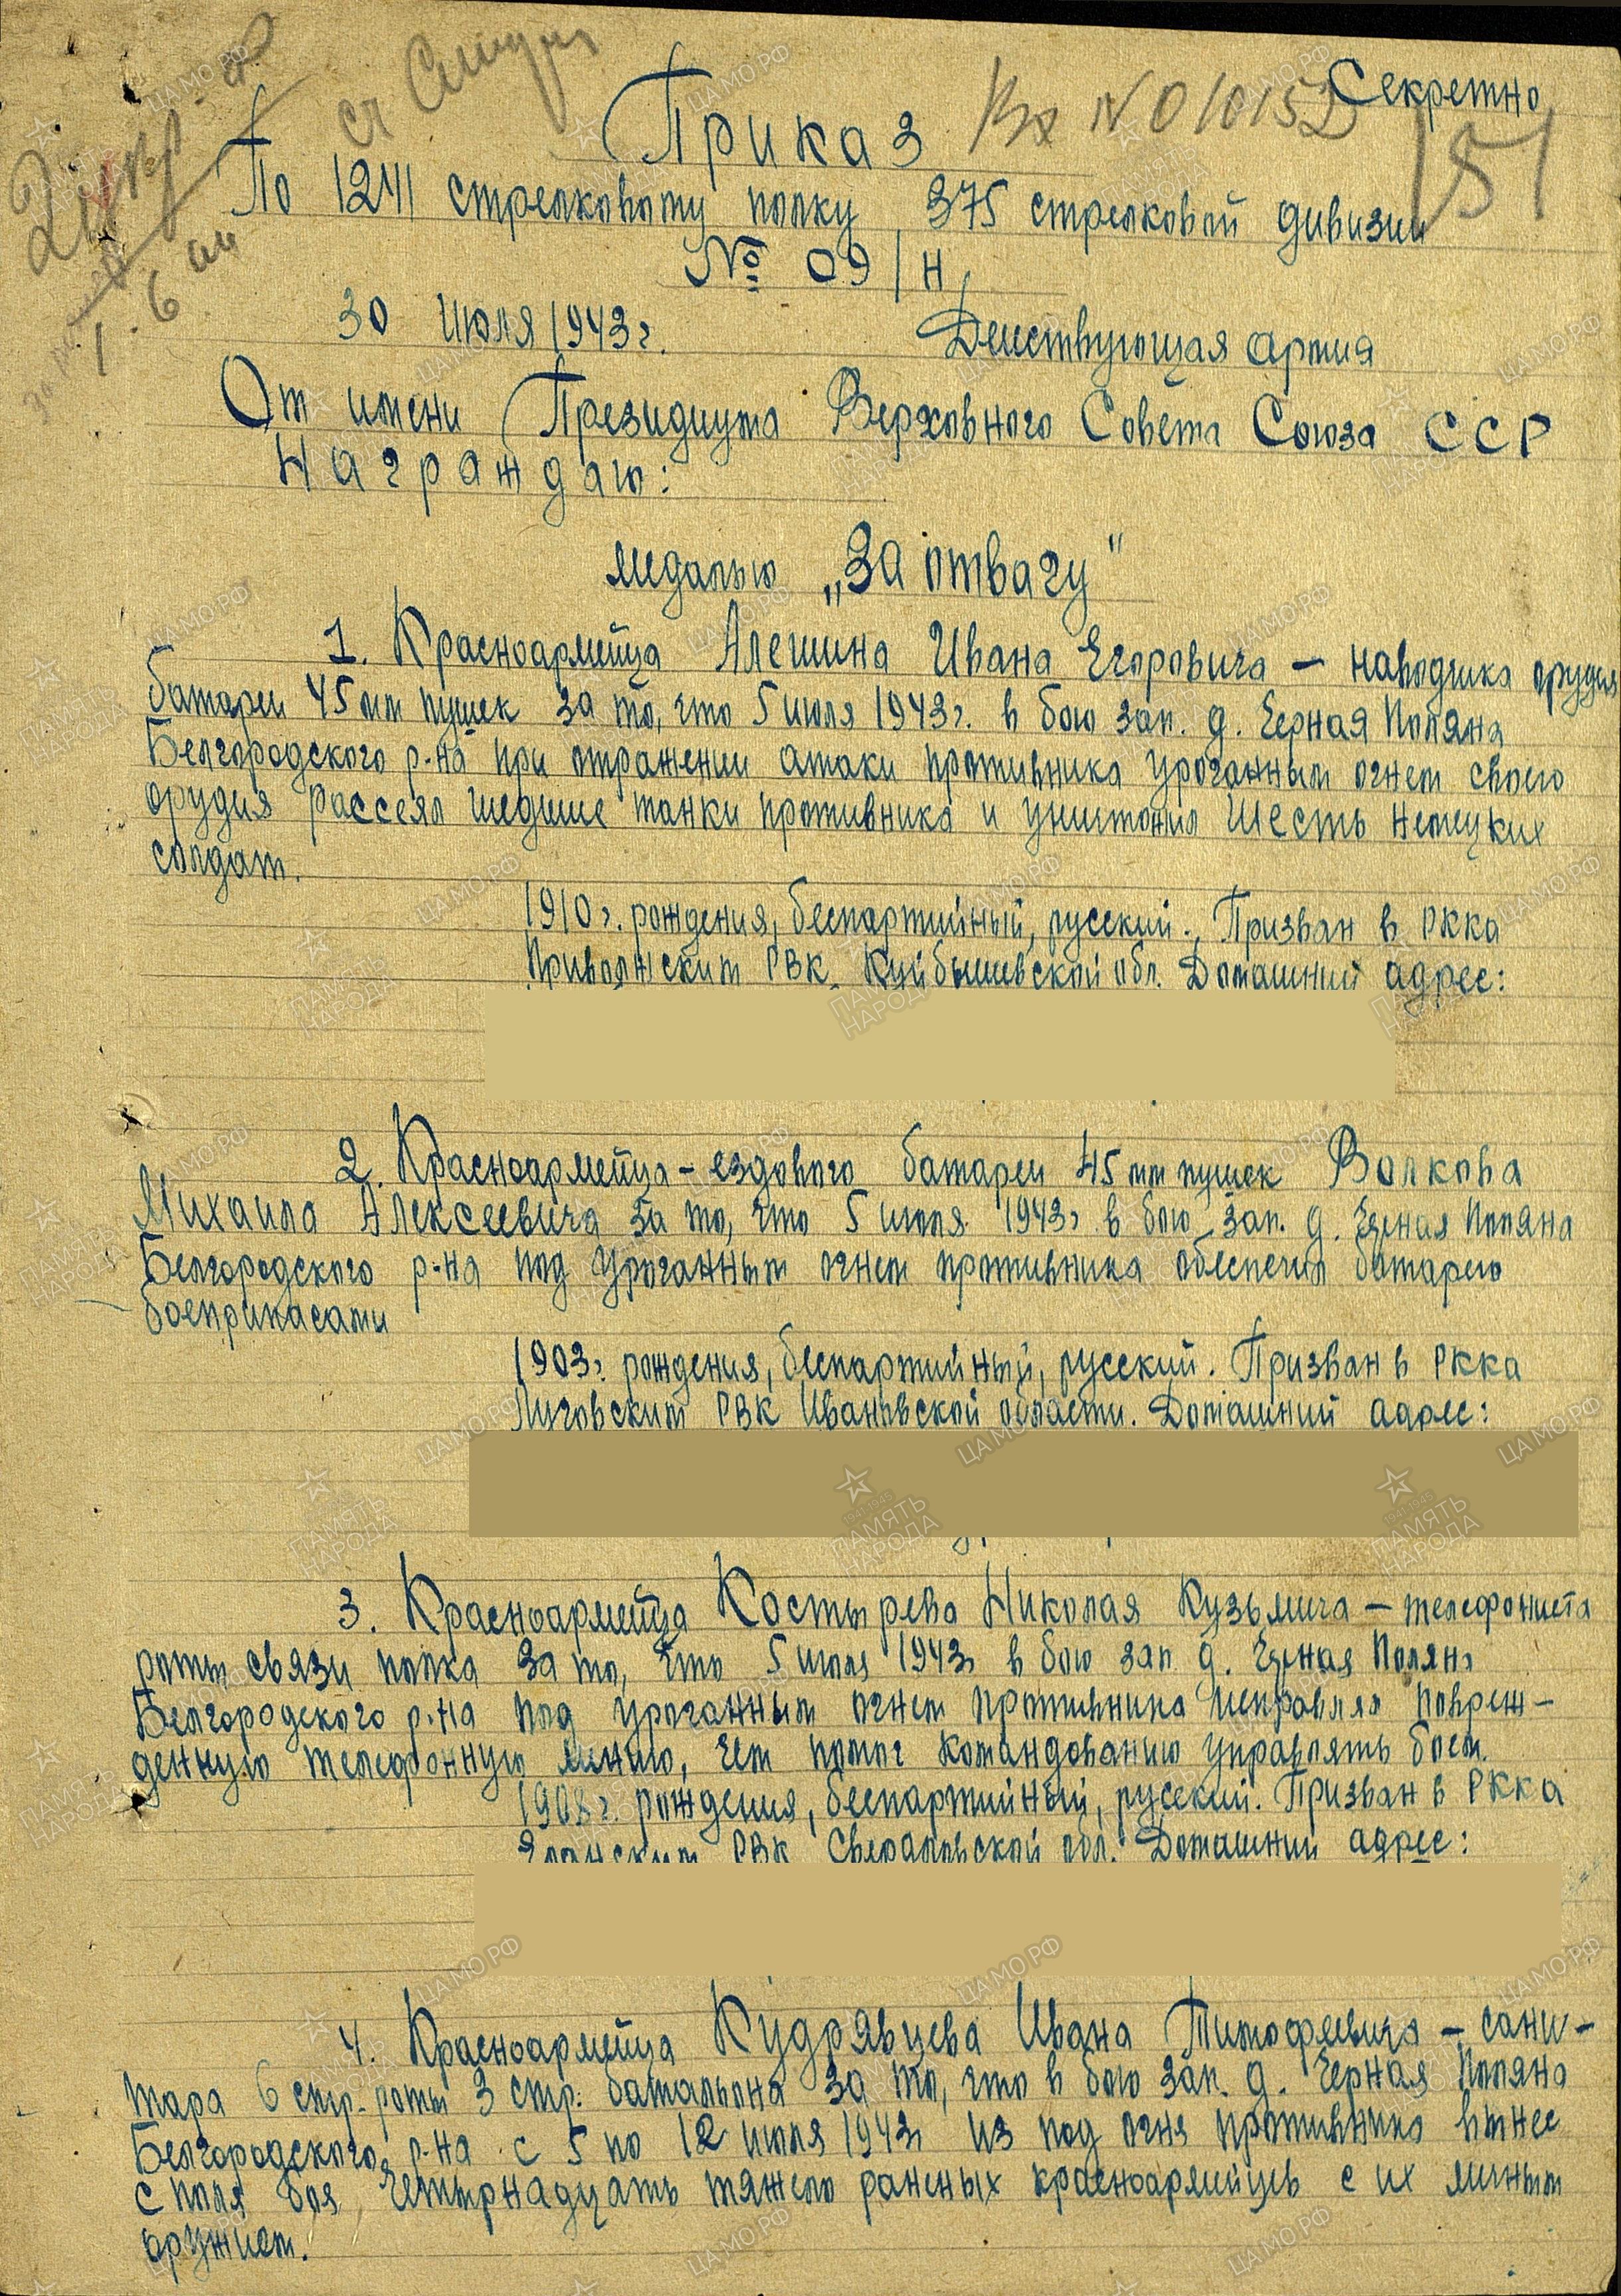 Секретно
Приказ
Вх № 01015
151
По 1241 стрелковому полку 375 стрелковой дивизии
№ 09/н
30 июля 1943г. Действующая армия
От имени Президиума Верховного Совета Союза ССР
Награждаю:
медалью „За отвагу"
1. Красноармейца Алешина Ивана Егоровича – наводчика орудия
батареи 45 мм пушек за то, что 5 июля 1943г. в бою зап. д. Черная Поляна
Белгородского р-на при отражении атаки противника ураганным огнем своего
орудия рассеял шедшие танки противника и уништожил шесть немецких
солдат.
1910г. рождения, беспартийный, русский. Призван в РККА
Приволжским РВК Куйбышевской обл. Домашний адрес:
2. Красноармейца – ездового батареи 45 мм пушек Волкова
Михаила Алексеевича за то, что 5 июля 1943г в бою зап. д. Черная Поляна
Белгородского р-на под ураганным огнем противника обеспечил батарею
боеприпасами
1903г. рождения, беспартийный, русский. Призван в РККА
РВК Ивановской области. Домашний адрес:
3. Красноармейца Костырева Николая Кузьмича – телефониста
роты связи полка за то, что 5 июля 1943г в бою зап. д. Черная Поляна
Белгородского р-на под ураганным огнем противника исправлял повреж-
денную телефонную линию, чем помог командованию управлять боем.
1908г. рождения, беспартийный, русский. Призван в РККА
РВК Свердловской обл. Домашний адрес:
4. Красноармейца Кудрявцева Ивана Тимофеевича – сани-
тара 6 стр. роты 3 стр. батальона за то, что в бою зап. д. Черная Поляна
Белгородского р-на с 5 по 12 июля 1943г из под огня противника вынес
с поля боя четырнадцать тяжело раненых красноармейцев с их личным
оружием.
ЦАМО.РФ
ПАМЯТЬ НАРОДА